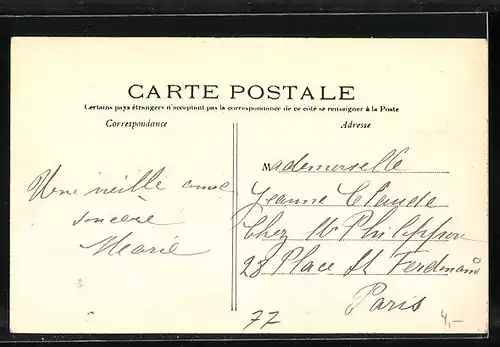 CARTE POSTALE
Certains pays étrangers n'acceptant pas la correspondance de ce côté se renseigner à la Poste
Correspondance
Adresse
Une vieille amie
sincère
Marie
Mademoiselle
Jeanne Claude
Chez Mr Philippon
28 Place St Ferdinand
Paris
77
4,-